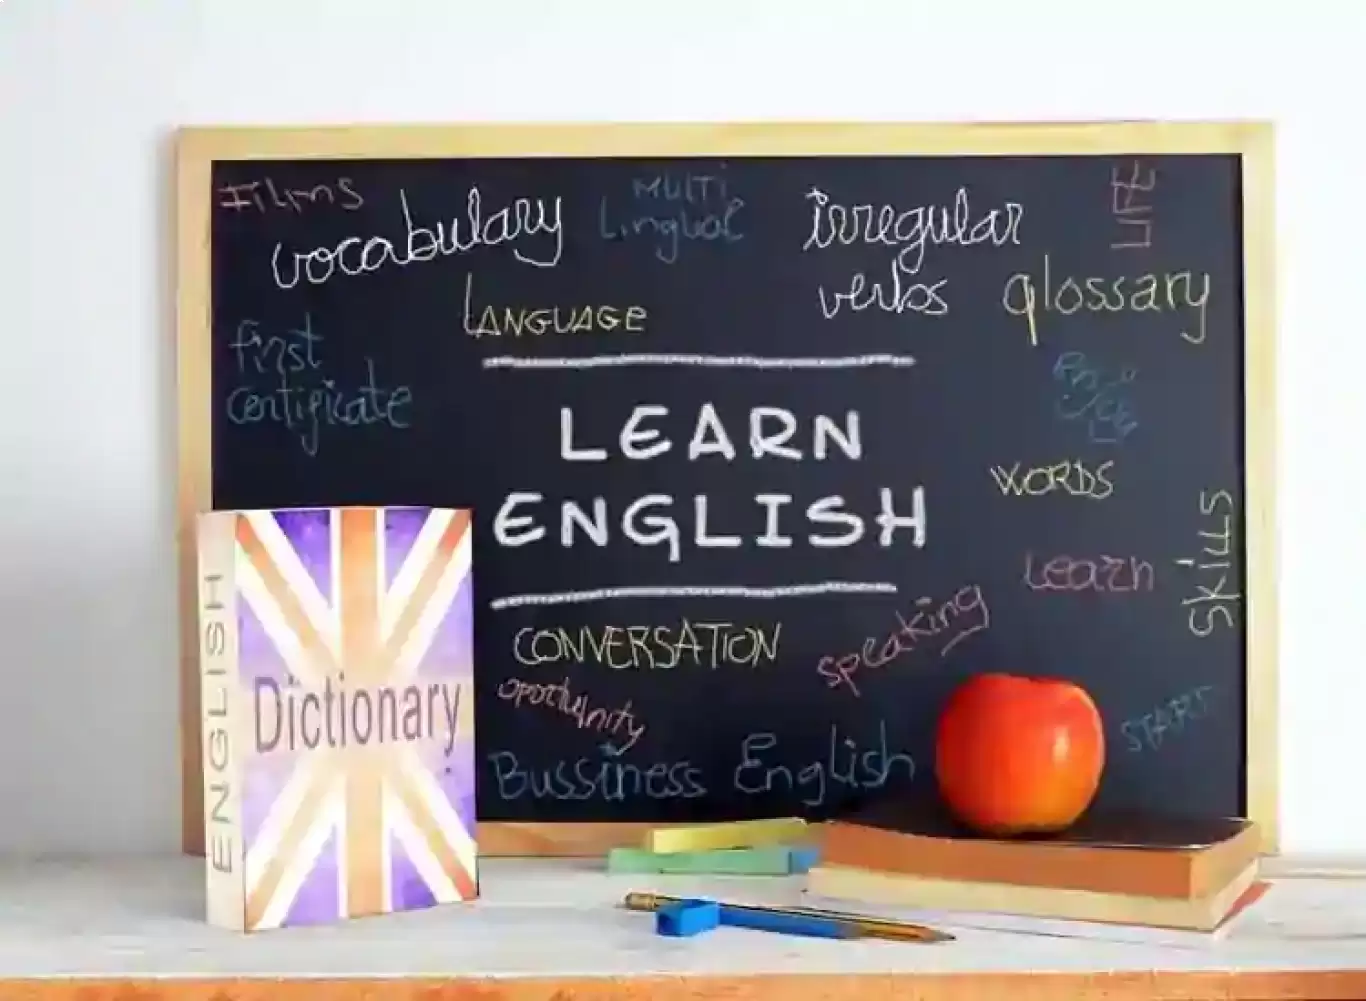 Films
vocabulary
MULTI
Lingual
irregular
verbs
LIFE
LANGUAGE
glossary
first
certificate
LEARN
ENGLISH
WORDS
Learn
Skills
CONVERSATION
speaking
oportunity
START
Bussiness English
ENGLISH
Dictionary